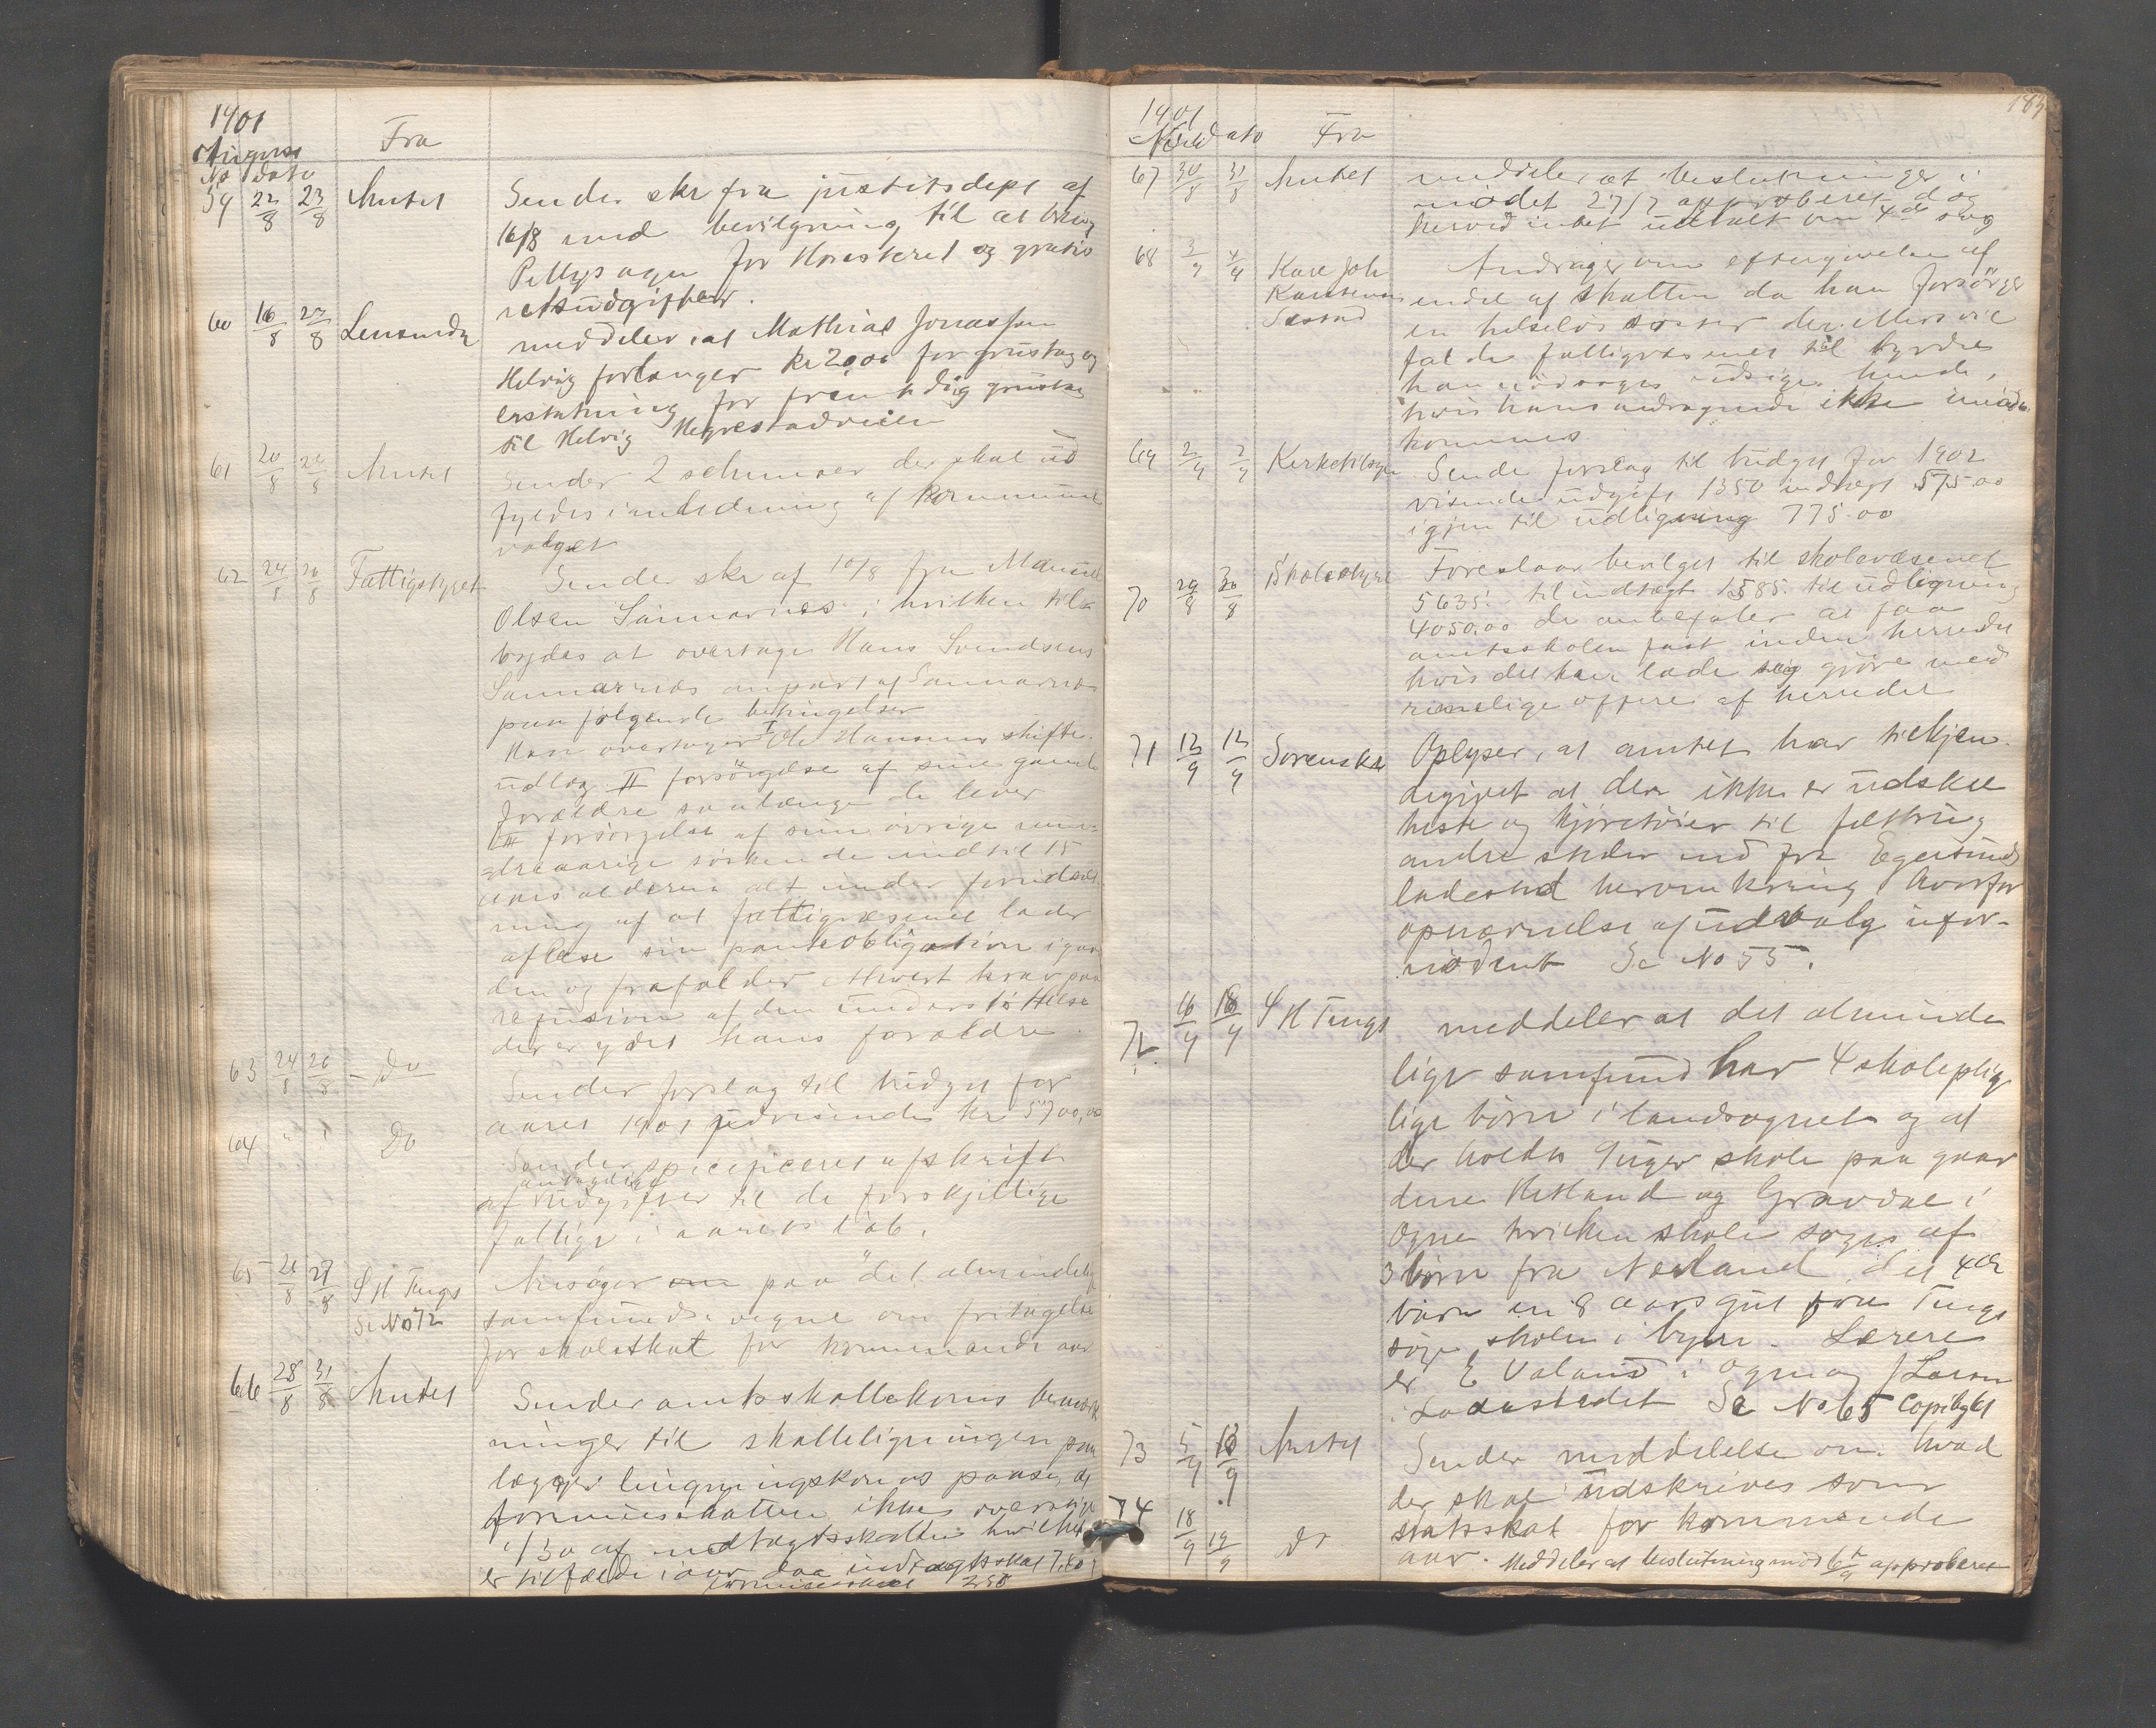 1901
August
No Dato Fra
59 22/8 23/8 Amtet Sender skr fra justitsdept af
16/8 med bevilgning til at bring
for Høiesteret og gratis
retsudgifter.
60 16/8 27/8 Lensmdn meddeler at Mathias Jonassen
Helvig forlanger kr 20,00 for grustag og
erstatning for fremtidig grustag
til Helvig Hegrestadveien
61 20/8 26/8 Amtet Sender 2 schemaer der skal ud
fyldes i anledning af kommune
valget
62 24/8 26/8 Fattigstyret Sender skr af 10/8 fra
Olsen Sannarnes i hvilken til-
bydes at overtage Hans Svendsens
Sannarnes anpart af Sannarnes
paa følgende betingelser
Han overtager I Ole Hansens skifte-
udlæg II forsørgelse af sine gamle
forældre saalænge de lever
III forsørgelse af sine øvrige min-
dreaarige søskende indtil 15
aars alderen alt under forudsæt-
ning af at fattigvæsenet lader
aflæse sin panteobligation i gaar
den og frafalder ethvert krav paa
refusion af den understøttelse
der er ydet hans forældre
63 24/8 26/8 - Do Sender forslag til budget for
aaret 1901 udvisende kr 5700,00
64 " " Do Sender specificeret afskrift
af udgifter til de forskjellige
fattige i aarets løb.
65 26/8 27/8 S H Tengs Ansøger om paa det almindelig
Se No 72 samfunds vegne om fritagelse
for skoleskat for kommende aar
66 28/8 31/8 Amtet Sender amtsskattekoms bemærk
ninger til skatteligningen paa
lægger ligningskoms paase, at
formueskatten ikke overstige
1/30 af indtægtsskatten hvilket
er tilfælde i aar daa indtægtsskat 7,80
formueskat 250
1901
No Dato Fra
183
67 30/8 31/8 Amtet meddeler at beslutninger i
mødet 27/7 approberet dog
herved intet udtalt om 4de sag
68 3/9 4/9 Karl Joh Andrager om eftergivelse af
endel af skatten da han forsørger
en helseløs søster der ellers vil
falde fattigvæsenet til byrde
han nødsages udsige hende,
hvis hans andragende ikke imøde
kommes
69 2/9 7/9 Kirketilsyn Sender forslag til budget for 1902
visende udgift 1350 indtægt 575.00
igjen til udligning 775.00
70 29/8 30/8 Skolestyret Foreslaar bevilget til skolevæsenet
5635. til indtægt 1585. til udligning
4050.00 de anbefaler at faa
amtsskolen fast inden herredet
hvis det kan lade sig gjøre med
rimelige offere af herredet
71 12/9 12/9 Sorenskr Oplyser, at amtet har tilkjen
degivet at der ikke er udskre
heste og kjøretøier til felttrin,
andre steder end fra Egersunds
ladested heromkring hvorfor
opnævnelse af udvalg ufor-
nødent Se No 55.
72 16/9 18/9 S H Tengs meddeler at det alminde
lige samfund har 4 skoleplig
lige børn i landsognet og at
der holdes 9 uger skole paa gaar
dene Hetland og Gravdal i
Ogne hvilken skole søges af
3 børn fra Nesland det 4de
barn en 8 aars gut fra Tengs
søger skolen i byen. Lærere
er E Valand i Ogne og J Larsen
i Ladestedet Se No 65 Copibyet
73 5/9 18/9 Amtet Sender meddelelse om hvad
der skal udskrives som
statsskat for kommende
aar.
74 18/9 19/9 Do Meddeler at beslutning mød 6/9 approberet